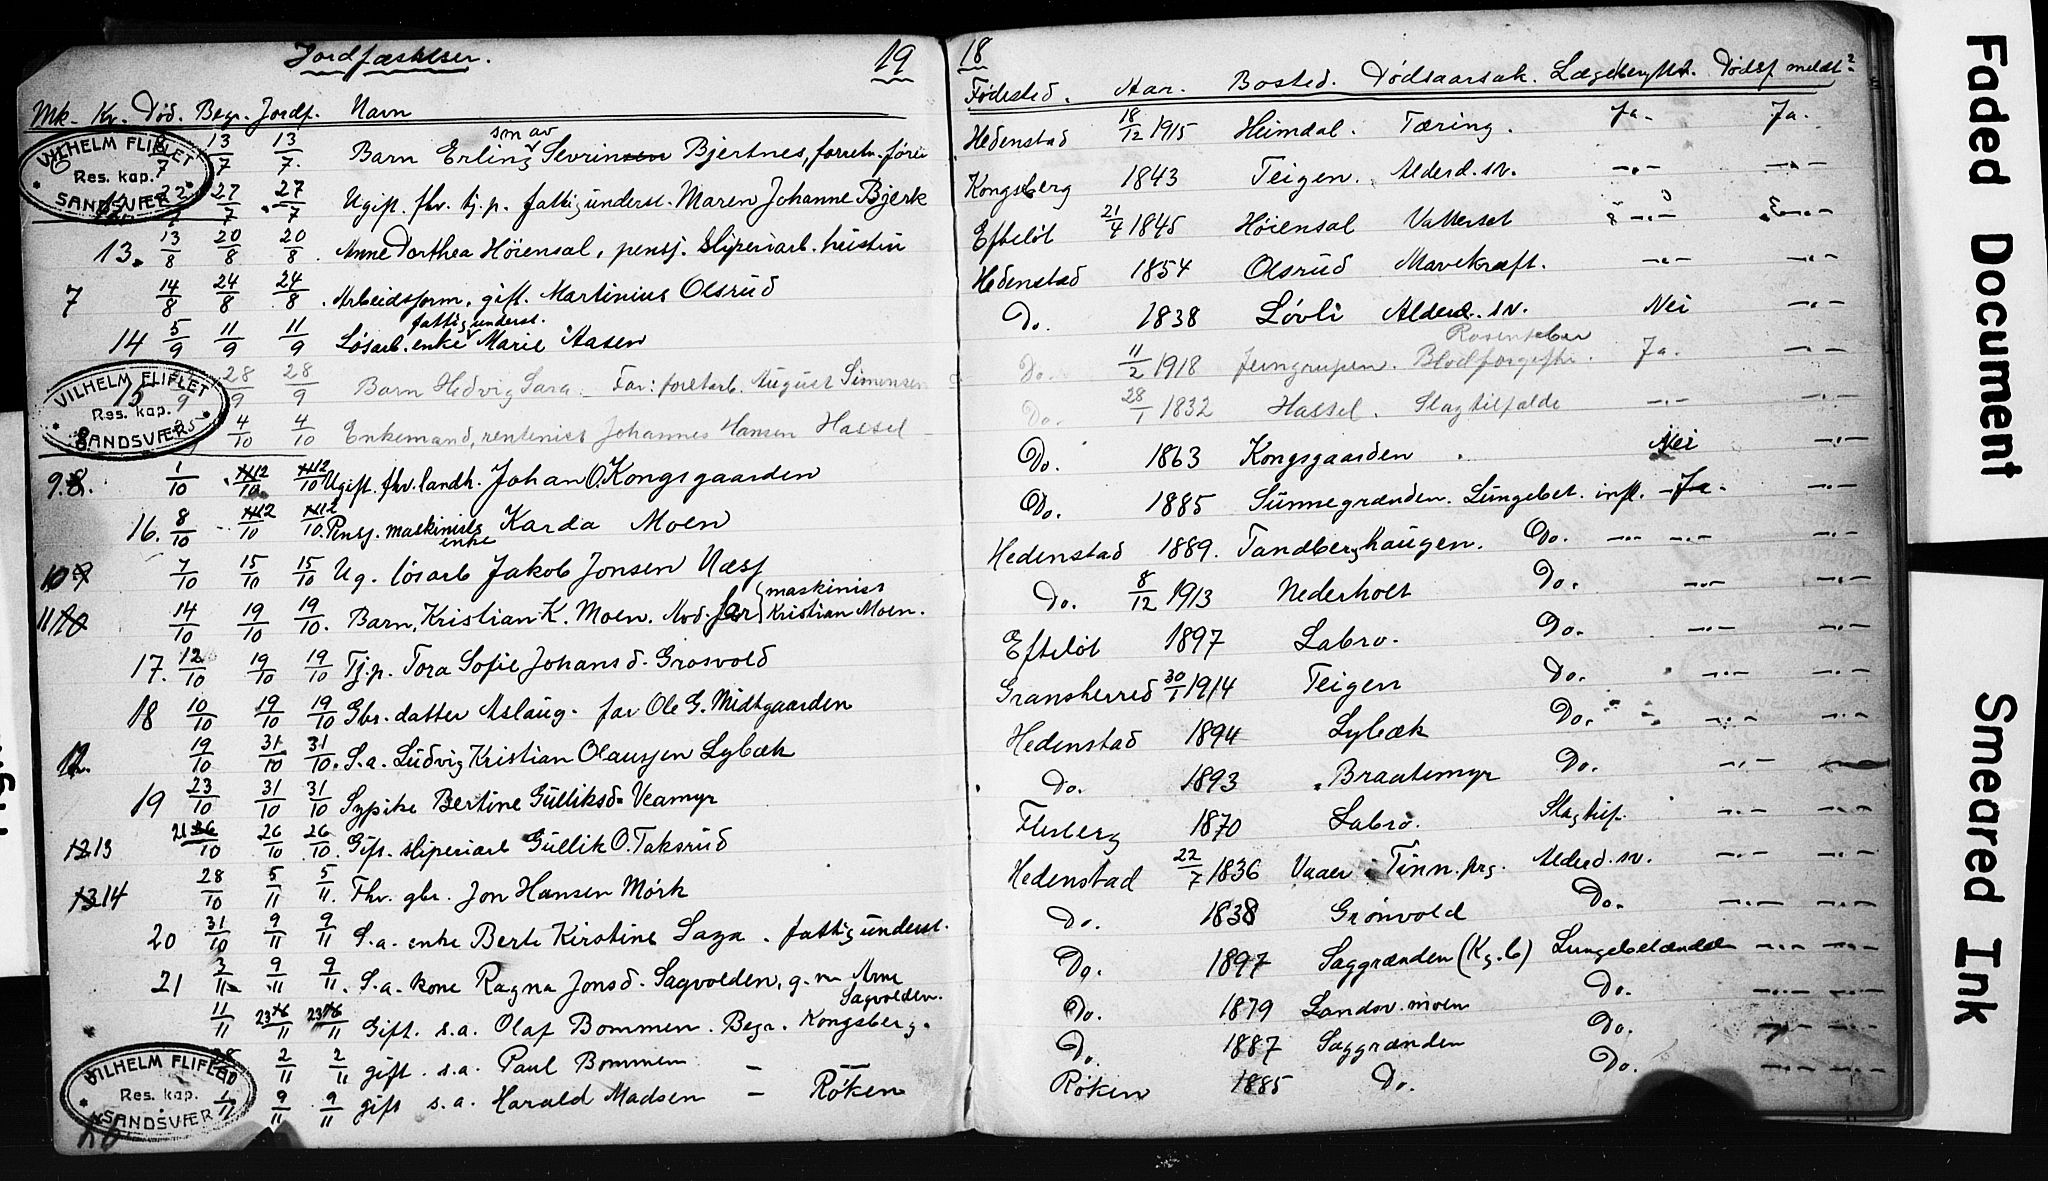 Jordfæstelser. 19
Mk. Kv. Død. Begr. Jordf. Navn
13/7 13/7. Barn Erling søn av Sevrinsen Bjertnes, forretn. fører
22 27/7 27/7 Ugift. fhv. tj. p. fattigunderst. Maren Johanne Bjerk
13. 13/8 20/8 20/8. Anne Dorthea Høiensal, pensj. sliperiarb. hustru
7 14/8 24/8 24/8. Arbeidsform. gift. Martinius Olsrud
fattigunderst.
14 5/9 11/9 11/9 Løsarb. enke Marie Aasen
15 28/9 28/9 Barn Hedvig Sara. Far: foretarb. August Simensen
8. 4/10 4/10 Enkemand, rentenist Johannes Hansen Hassel
9. 8. 1/10 12/10 12/10 Ugift. fhv. landh. Johan O. Kongsgaarden
16. 8/10 12/10 12/10. Pensj. maskinists enke Karda Moen
10 9 7/10 15/10 15/10 Ug. løsarb Jakob Jonsen Næss
11 10 14/10 19/10 19/10. Barn, Kristian K. Moen. Mod. far maskinist Kristian Moen.
17. 12/10 19/10 19/10 Tj.p. Tora Sofie Johansd. Grosvold
18 10/10 19/10 19/10 Gbr. datter Aslaug. far Ole G. Midtgaarden
12. 19/10 31/10 31/10. S.a. Ludvig Kristian Olaussen Lybæk
19 23/10 31/10 31/10 Sypike Bertine Gulliksd. Veamyr
12 13 21 26/10 26/10 26/10. Gift. sliperiarb Gullik O. Taksrud
13 14 28/10 5/11 5/11. Fhv. gbr. Jon Hansen Mørk
20 31/10 9/11 9/11 S.a. enke Berte Kirstine Saga. fattigunderst.
21 3/11 9/11 9/11. S.a. kone Ragna Jonsd. Sagvolden, g. m Arne Sagvolden.
11/11 23 16/11 23 16/11 Gift. s.a. Olaf Bommen. Begr. Kongsberg.
28 2/11 2/11 gift. s.a. Paul Bommen —
1/11 9/11 9/11 gift s.a. Harald Madsen — Røken
VILHELM FLIFLET
Res. kap.
SANDSVÆR
VILHELM FLIFLET
Res. kap.
SANDSVÆR
VILHELM FLIFLET
Res. kap.
SANDSVÆR
18
Fødested. Aar. Bosted. Dødsaarsak. Lægebeh. Dødsf meldt?
Hedenstad 18/12 1915 Heimdal. Tæring. Ja. Ja.
Kongsberg 1843 Teigen. Alderd. sv. —"— —"—
Efteløt 21/4 1845 Høiensal Vattersot —"— —"—
Hedenstad 1854 Olsrud Mavekræft. —"— —"—
Do. 1838 Løvli Alderd. sv. Nei —"—
Do. 11/2 1918 Jerngrupen. Blodforgiftn. Ja. —"—
Do. 28/1 1832 Hassel. Slagtilfælde —"— —"—
Do. 1863 Kongsgaarden Nei —"—
Do. 1885 Sunnegrænden. Lungebet. infl. Ja. —"—
Hedenstad 1889. Tandberghaugen. Do. —"— —"—
Do. 8/12 1913 Nederholt Do. —"— —"—
Efteløt 1897 Labro. Do. —"— —"—
Gransherred 30/1 1914 Teigen Do. —"—
Hedenstad 1894 Lybæk Do. —"— —"—
Do. 1893 Braatemyr Do. —"—
Flesberg 1870 Labro. Slagtilf. —"— —"—
Hedenstad 22/7 1836 Vaaer Tinn. prg. Alderd. sv. —"— —"—
Do. 1838 Grønvold Do. —"— —"—
Do. 1897 Saggrænden (Kg.b) Lungebetændelse —"— —"—
Do. 1879 Landsv. moen Do. —"— —"—
Do. 1887 Saggrænden Do. —"—
Røken 1885 Do. Do. —"— —"—
Faded Document
Smeared Ink